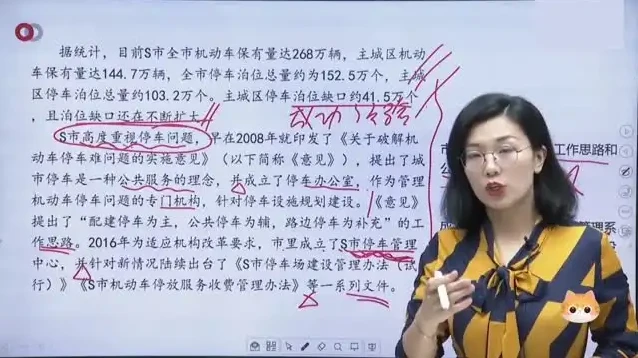 据统计，目前S市全市机动车保有量达268万辆，主城区机动
车保有量达144.7万辆，全市停车泊位总量约为152.5万个，主城
区停车泊位总量约103.2万个。主城区停车泊位缺口约41.5万个
，且泊位缺口还在不断扩大。
成功经验
S市高度重视停车问题，早在2008年就印发了《关于破解机
动车停车难问题的实施意见》（以下简称《意见》），提出了城
市停车是一种公共服务的理念，并成立了停车办公室，作为管理
机动车停车问题的专门机构，针对停车设施规划建设。《意见》
提出了“配建停车为主，公共停车为辅，路边停车为补充”的工
作思路。2016年为适应机构改革要求，市里成立了S市停车管理
中心，并针对新情况陆续出台了《S市停车场建设管理办法（试
行）》《S市机动车停放服务收费管理办法》等一系列文件。
工作思路和
管理系